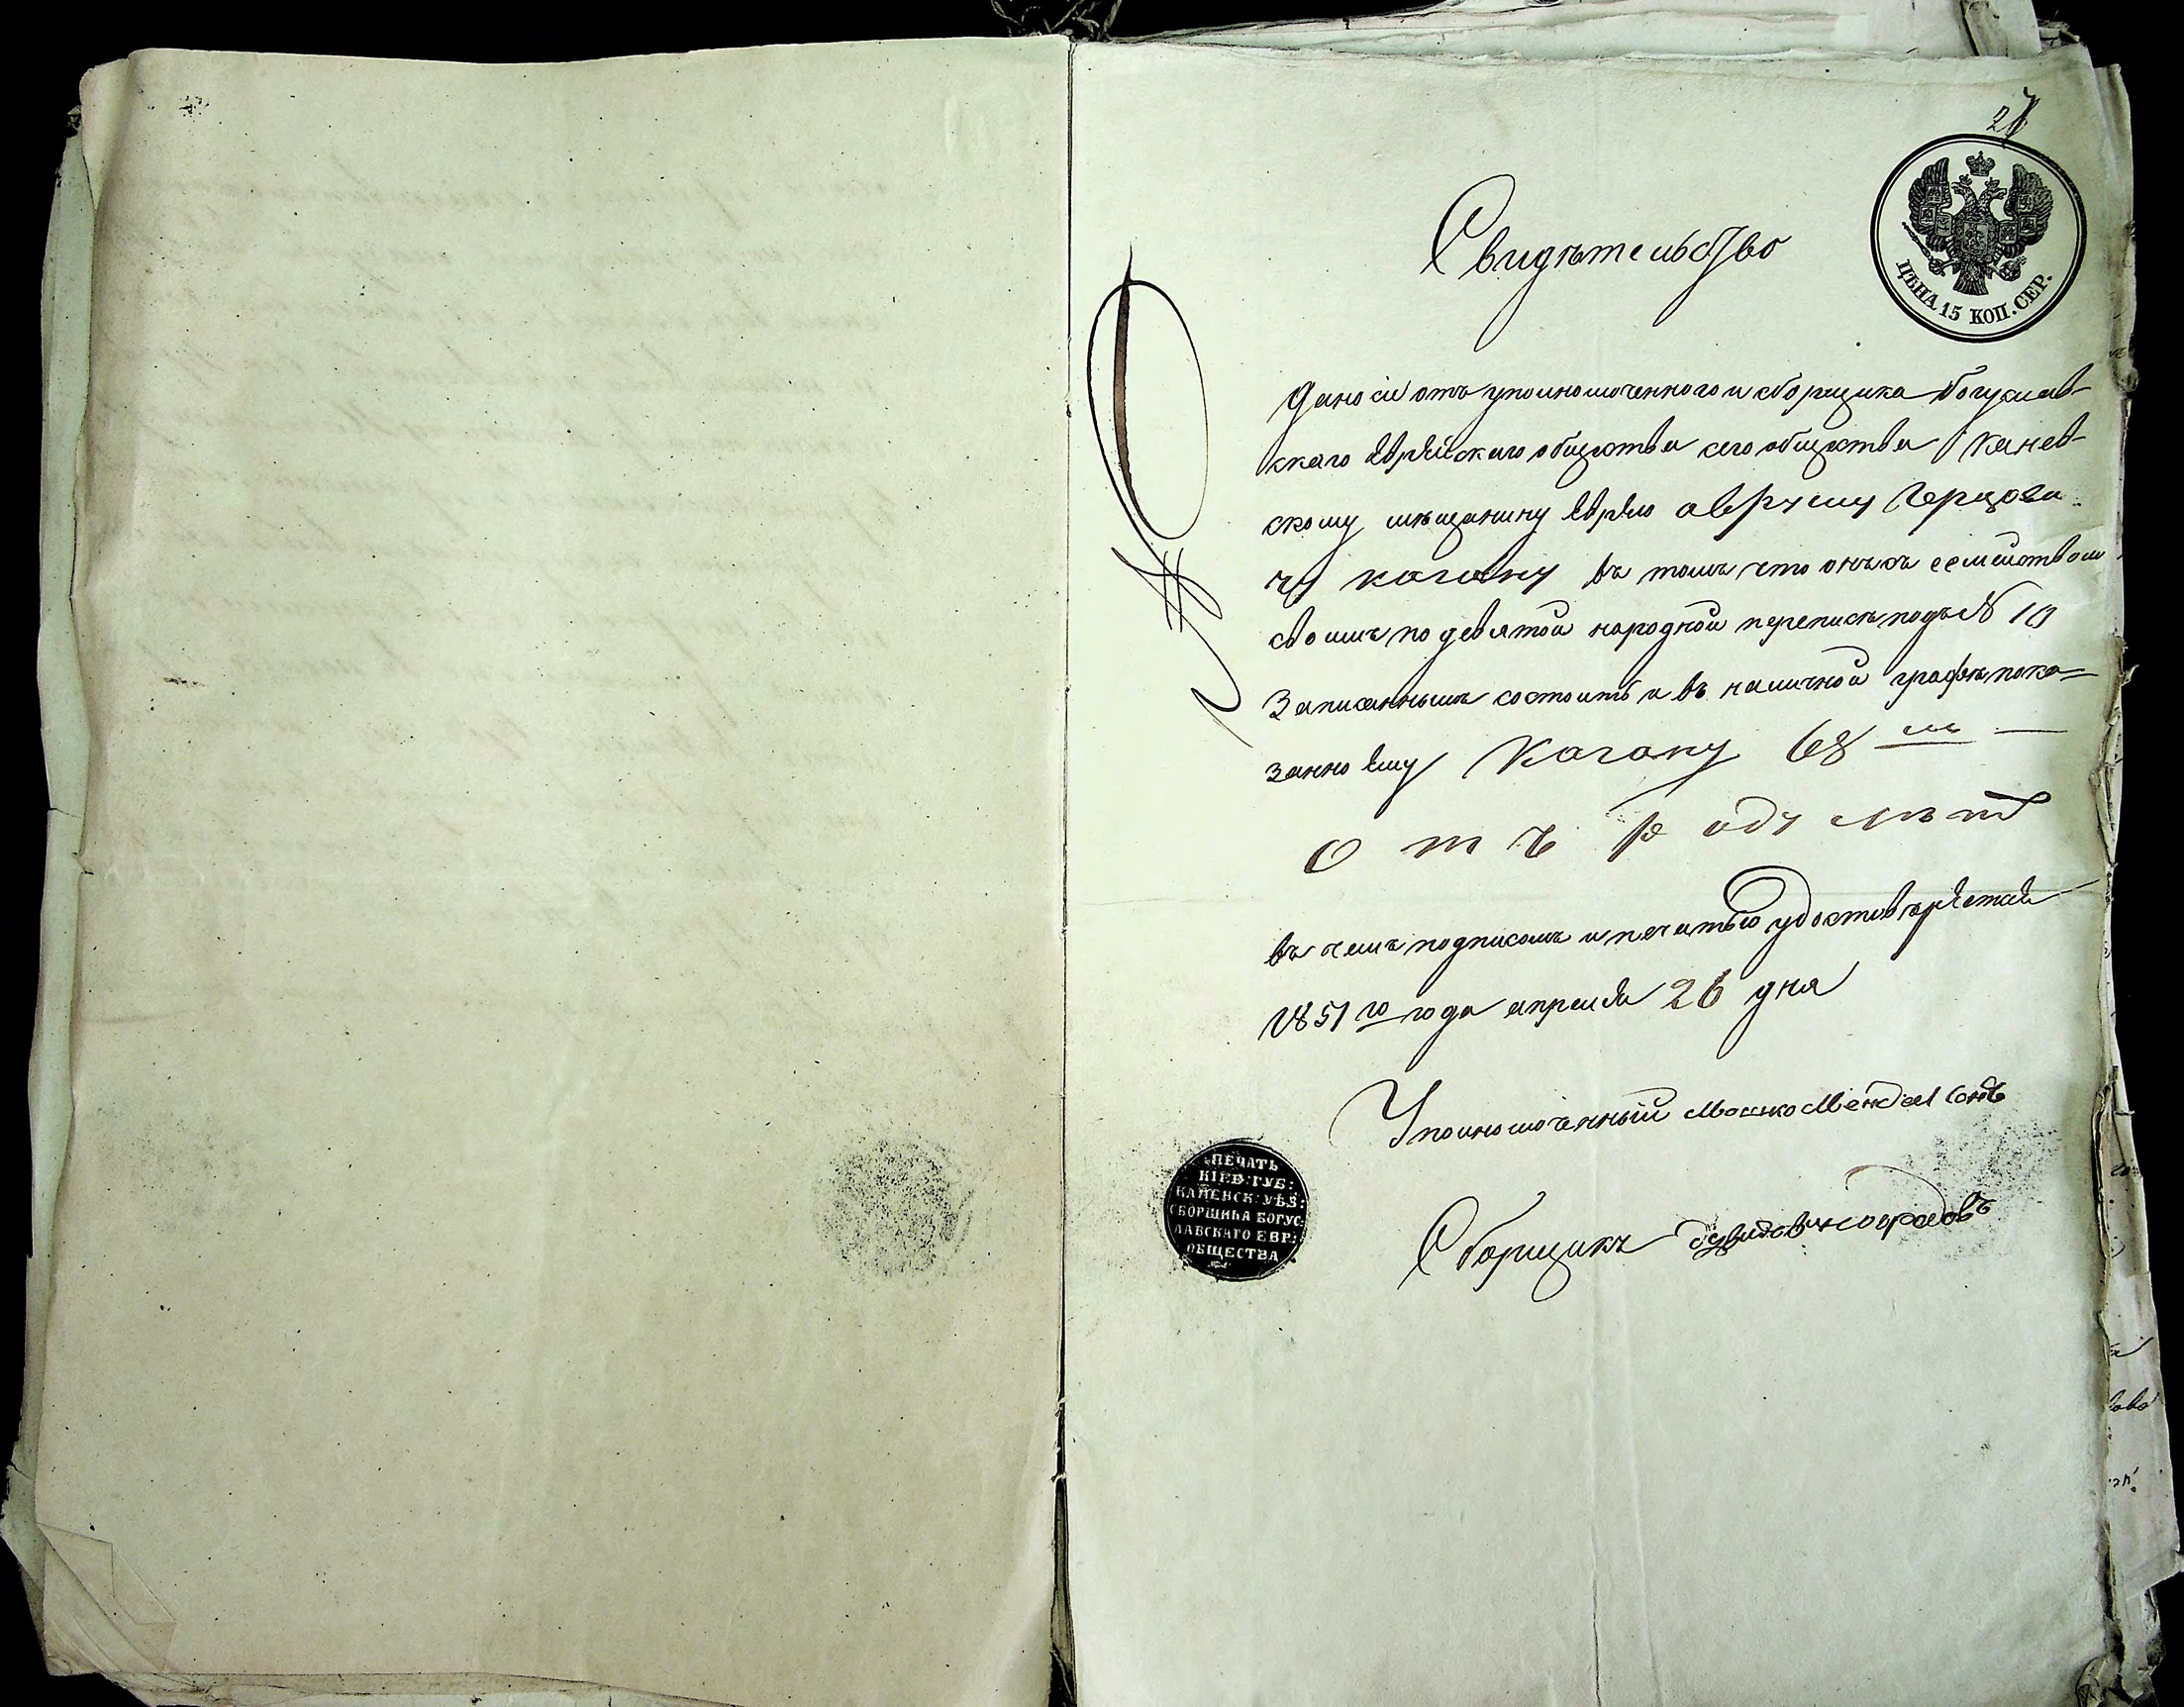 27
Свидѣтельство
ЦѢНА 15 КОП. СЕР.
Дано сіе отъ уполномоченного и сборщика богуслав-
скаго Еврейскаго общества сего общества Канев-
скому мѣщанину Еврею авруму Герцови
чу когану въ томъ что онъ съ семействомъ
своимъ по девятой народной переписѣ подъ № 10
Записаннымъ состоитъ и въ наличной графѣ пока-
занно Ему Когану 68 мь —
отъ роду лѣтъ
въ чемъ подписомъ и печатью удостовѣряется
1851 го года апреля 26 дня
Уполномоченный Мошко Мендельсонъ
Сборщикъ
ПЕЧАТЬ
КІЕВ: ГУБ:
КАНЕВСК: УѢЗ:
СБОРЩИКА БОГУС
ЛАВСКАГО ЕВР:
ОБЩЕСТВА